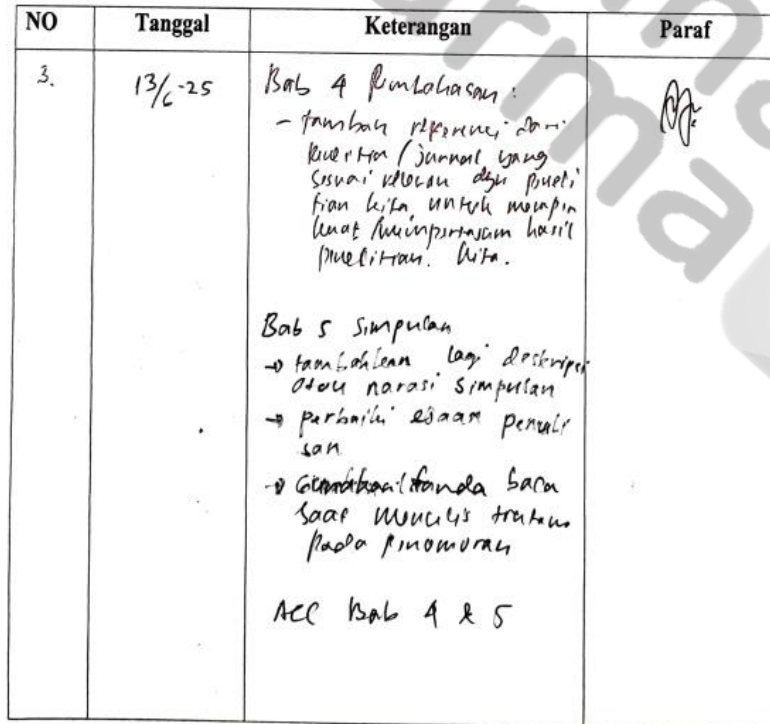 NO Tanggal Keterangan Paraf
3. 13/6-25 Bab 4 Pembahasan :
- tambah referensi dari
penelitian / jurnal yang
sesuai relevan dgn peneli
tian kita untuk memper
kuat hasil
penelitian kita.
Bab 5 Simpulan
→ tambahkan lagi deskripsi
atau narasi simpulan
→ perbaiki ejaan penuli
san
→ tanda baca
saat menulis
pada penomoran
ACC Bab 4 & 5